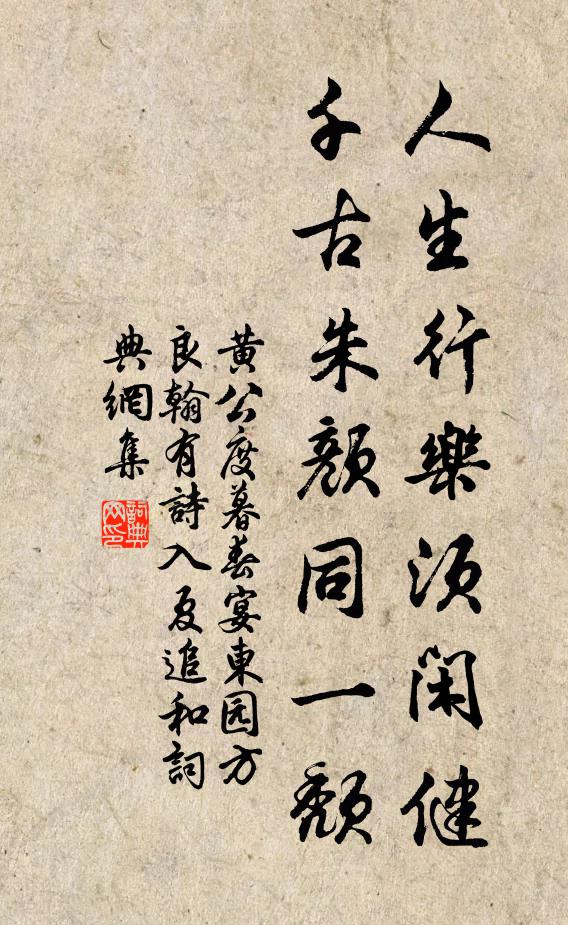 人生行樂須閑健
千古朱顏同一頹
黃公度暮春宴東园方
良翰有詩入夏追和詞
典網集
詞典網印